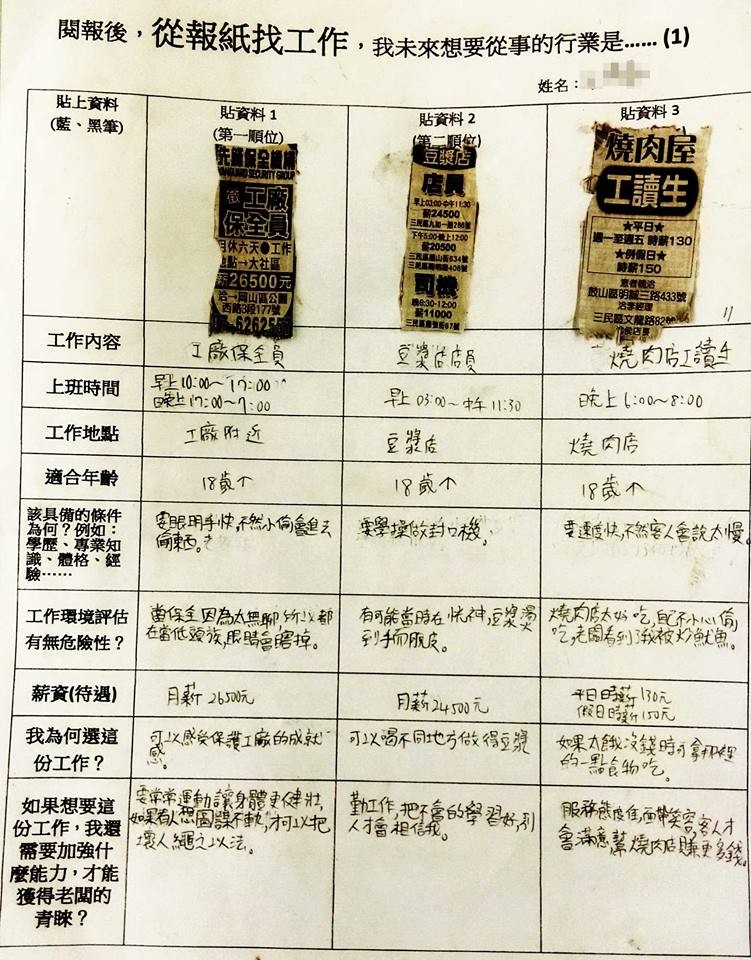 閱報後，從報紙找工作，我未來想要從事的行業是…… (1)
姓名：
貼上資料
(藍、黑筆)
貼資料 1
(第一順位)
先鋒保全組織
VANGUARD SECURITY GROUP
徵 工廠
保全員
月休六天●工作
地點→大社區
薪26500元
洽→岡山區公園
西路3段177號
626255
貼資料 2
(第二順位)
豆漿店
店員
早上03:00-中午11:30
薪24500
三民區九如一路286號
下午5:00-晚上12:00
薪20500
司機
晚8:30-12:00
薪11000
貼資料 3
燒肉屋
工讀生
★平日★
週一至週五 時薪130
★例假日★
時薪150
意者親洽
鼓山區明誠三路433號
洽李經理
三民區文龍路82號
洽侯店長
工作內容
工廠保全員
豆漿店店員
燒肉店工讀生
上班時間
早上10:00～17:00
晚上17:00～7:00
早上 03:00～中午 11:30
晚上 6:00～8:00
工作地點
工廠附近
豆漿店
燒肉店
適合年齡
18歲↑
18歲↑
18歲↑
該具備的條件
為何？例如：
學歷、專業知
識、體格、經
驗……
要眼明手快,不然小偷會進去
偷東西。
要學操做封口機。
要速度快,不然客人會說太慢。
工作環境評估
有無危險性？
當保全因為太無聊,所以都
在當低頭族,眼睛會瞎掉。
有可能當時在恍神,豆漿燙
到手而脫皮。
燒肉店太好吃,配不小心偷
吃,老闆看到了我被炒魷魚。
薪資(待遇)
月薪26500元
月薪24500元
平日時薪130元
假日時薪150元
我為何選這
份工作？
可以感受保護工廠的成就
感。
可以喝不同地方做得豆漿
如果太餓沒錢時可拿那裡
的一點食物吃。
如果想要這
份工作，我還
需要加強什
麼能力，才能
獲得老闆的
青睞？
要常常運動讓身體更健壯,
如果有人想圖謀不軌,才可以把
壞人繩之以法。
勤工作,把不會的學習好,別
人才會相信我。
服務態度佳,面帶笑容,客人才
會滿意幫燒肉店賺更多錢。